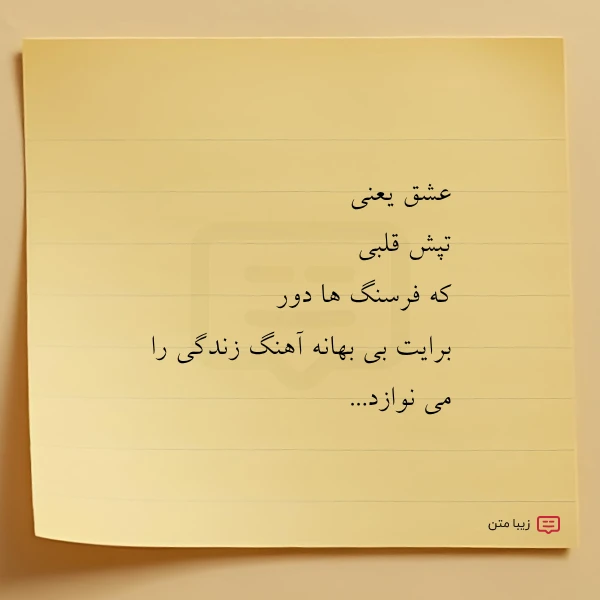 عشق یعنی
تپش قلبی
که فرسنگ ها دور
برایت بی بهانه آهنگ زندگی را
می نوازد...
زیبا متن